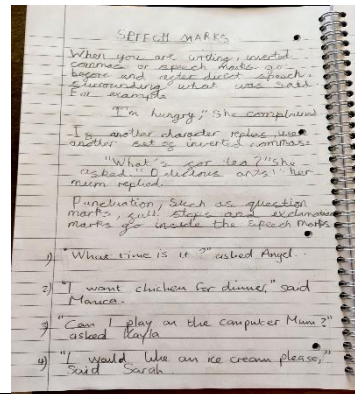 SPEECH MARKS
When you are writing, inverted
commas or speech marks go
before and after direct speech,
surrounding what was said
For example
I'm hungry," She complained
If another character replies, use
another set of inverted commas.
"What's for tea?" she
asked." her
mum replied.
Punctuation, Such as question
marks, full stops and exclamation
marks go inside the speech marks.
1) "What time is it?" asked Angel.
2) "I want chicken for dinner," said
3) "Can I play on the computer Mum?"
asked Kayla
4) "I would like an ice cream please,"
Said Sarah.